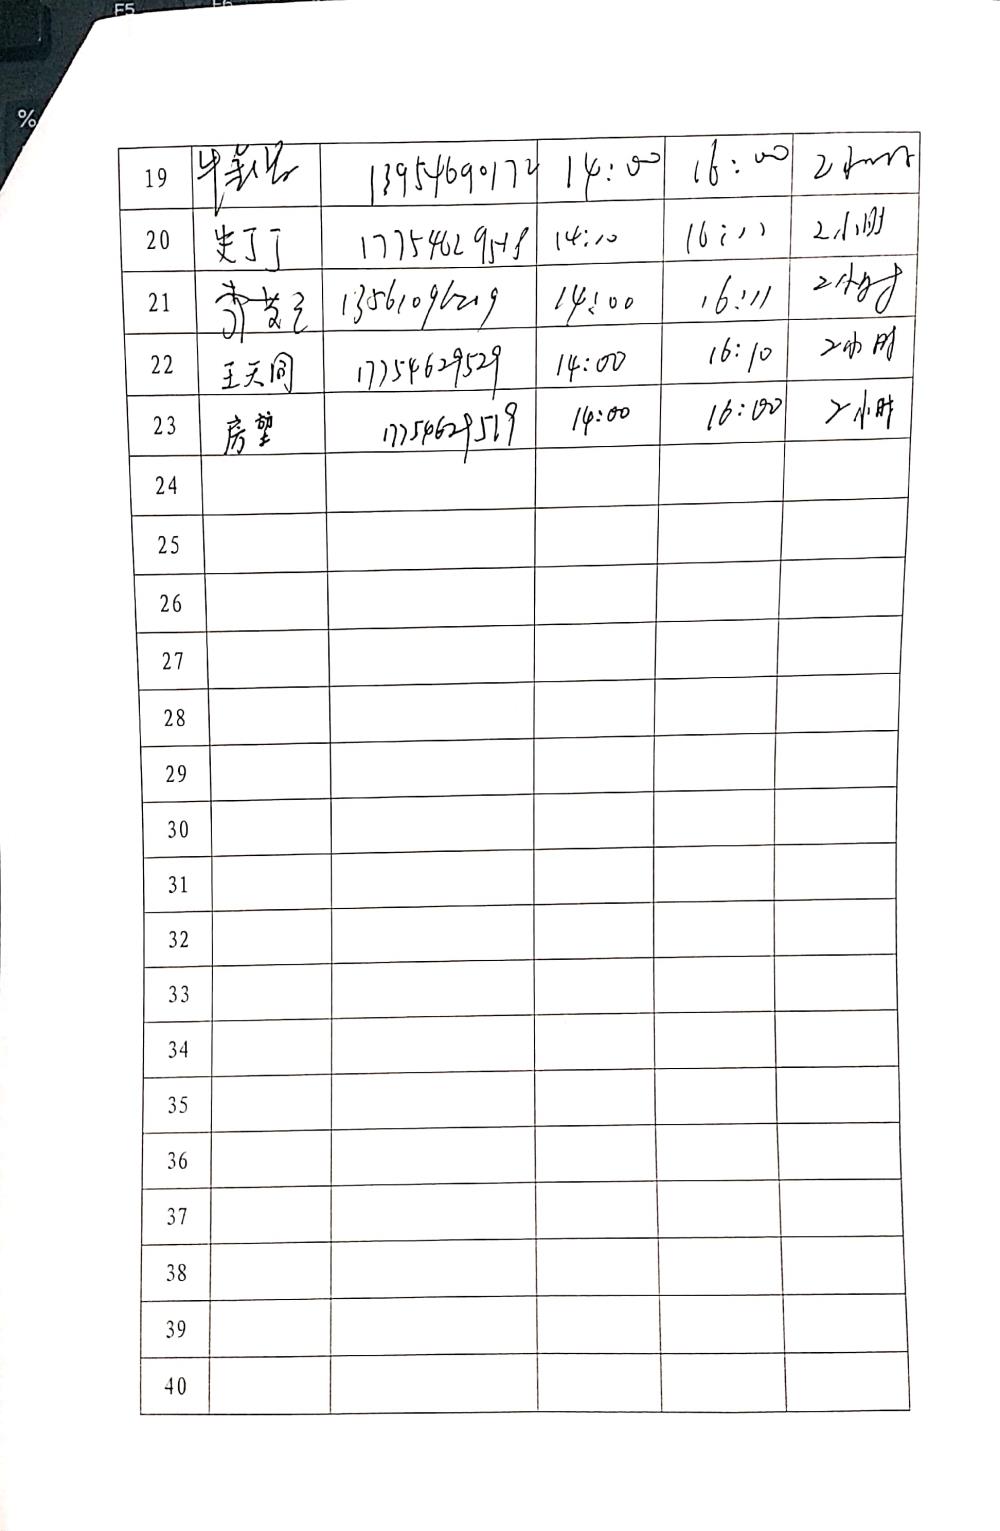 F5
%
19 13954690172 14:00 16:00 2小时
20 史丁丁 14:10 16:11 2小时
21 14:00 16:11 2小时
22 王天同 17754629529 14:00 16:10 2小时
23 房望 17754629519 14:00 16:00 2小时
24
25
26
27
28
29
30
31
32
33
34
35
36
37
38
39
40